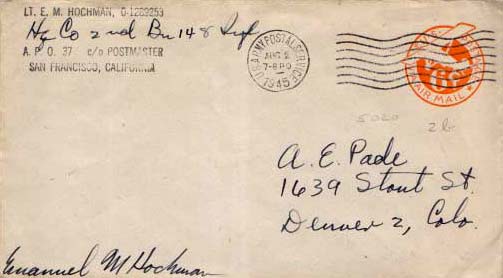 LT. E. M. HOCHMAN, O-1289253
Hq Co 2nd Bn 148 Inf
A. P O. 37 c/o POSTMASTER
SAN FRANCISCO, CALIFORNIA
U.S. ARMY POSTAL SERVICE
AUG 2
1945
AIR MAIL
5020
26
A. E. Pade
1639 Stout St.
Denver 2, Colo.
Emanuel M Hochman